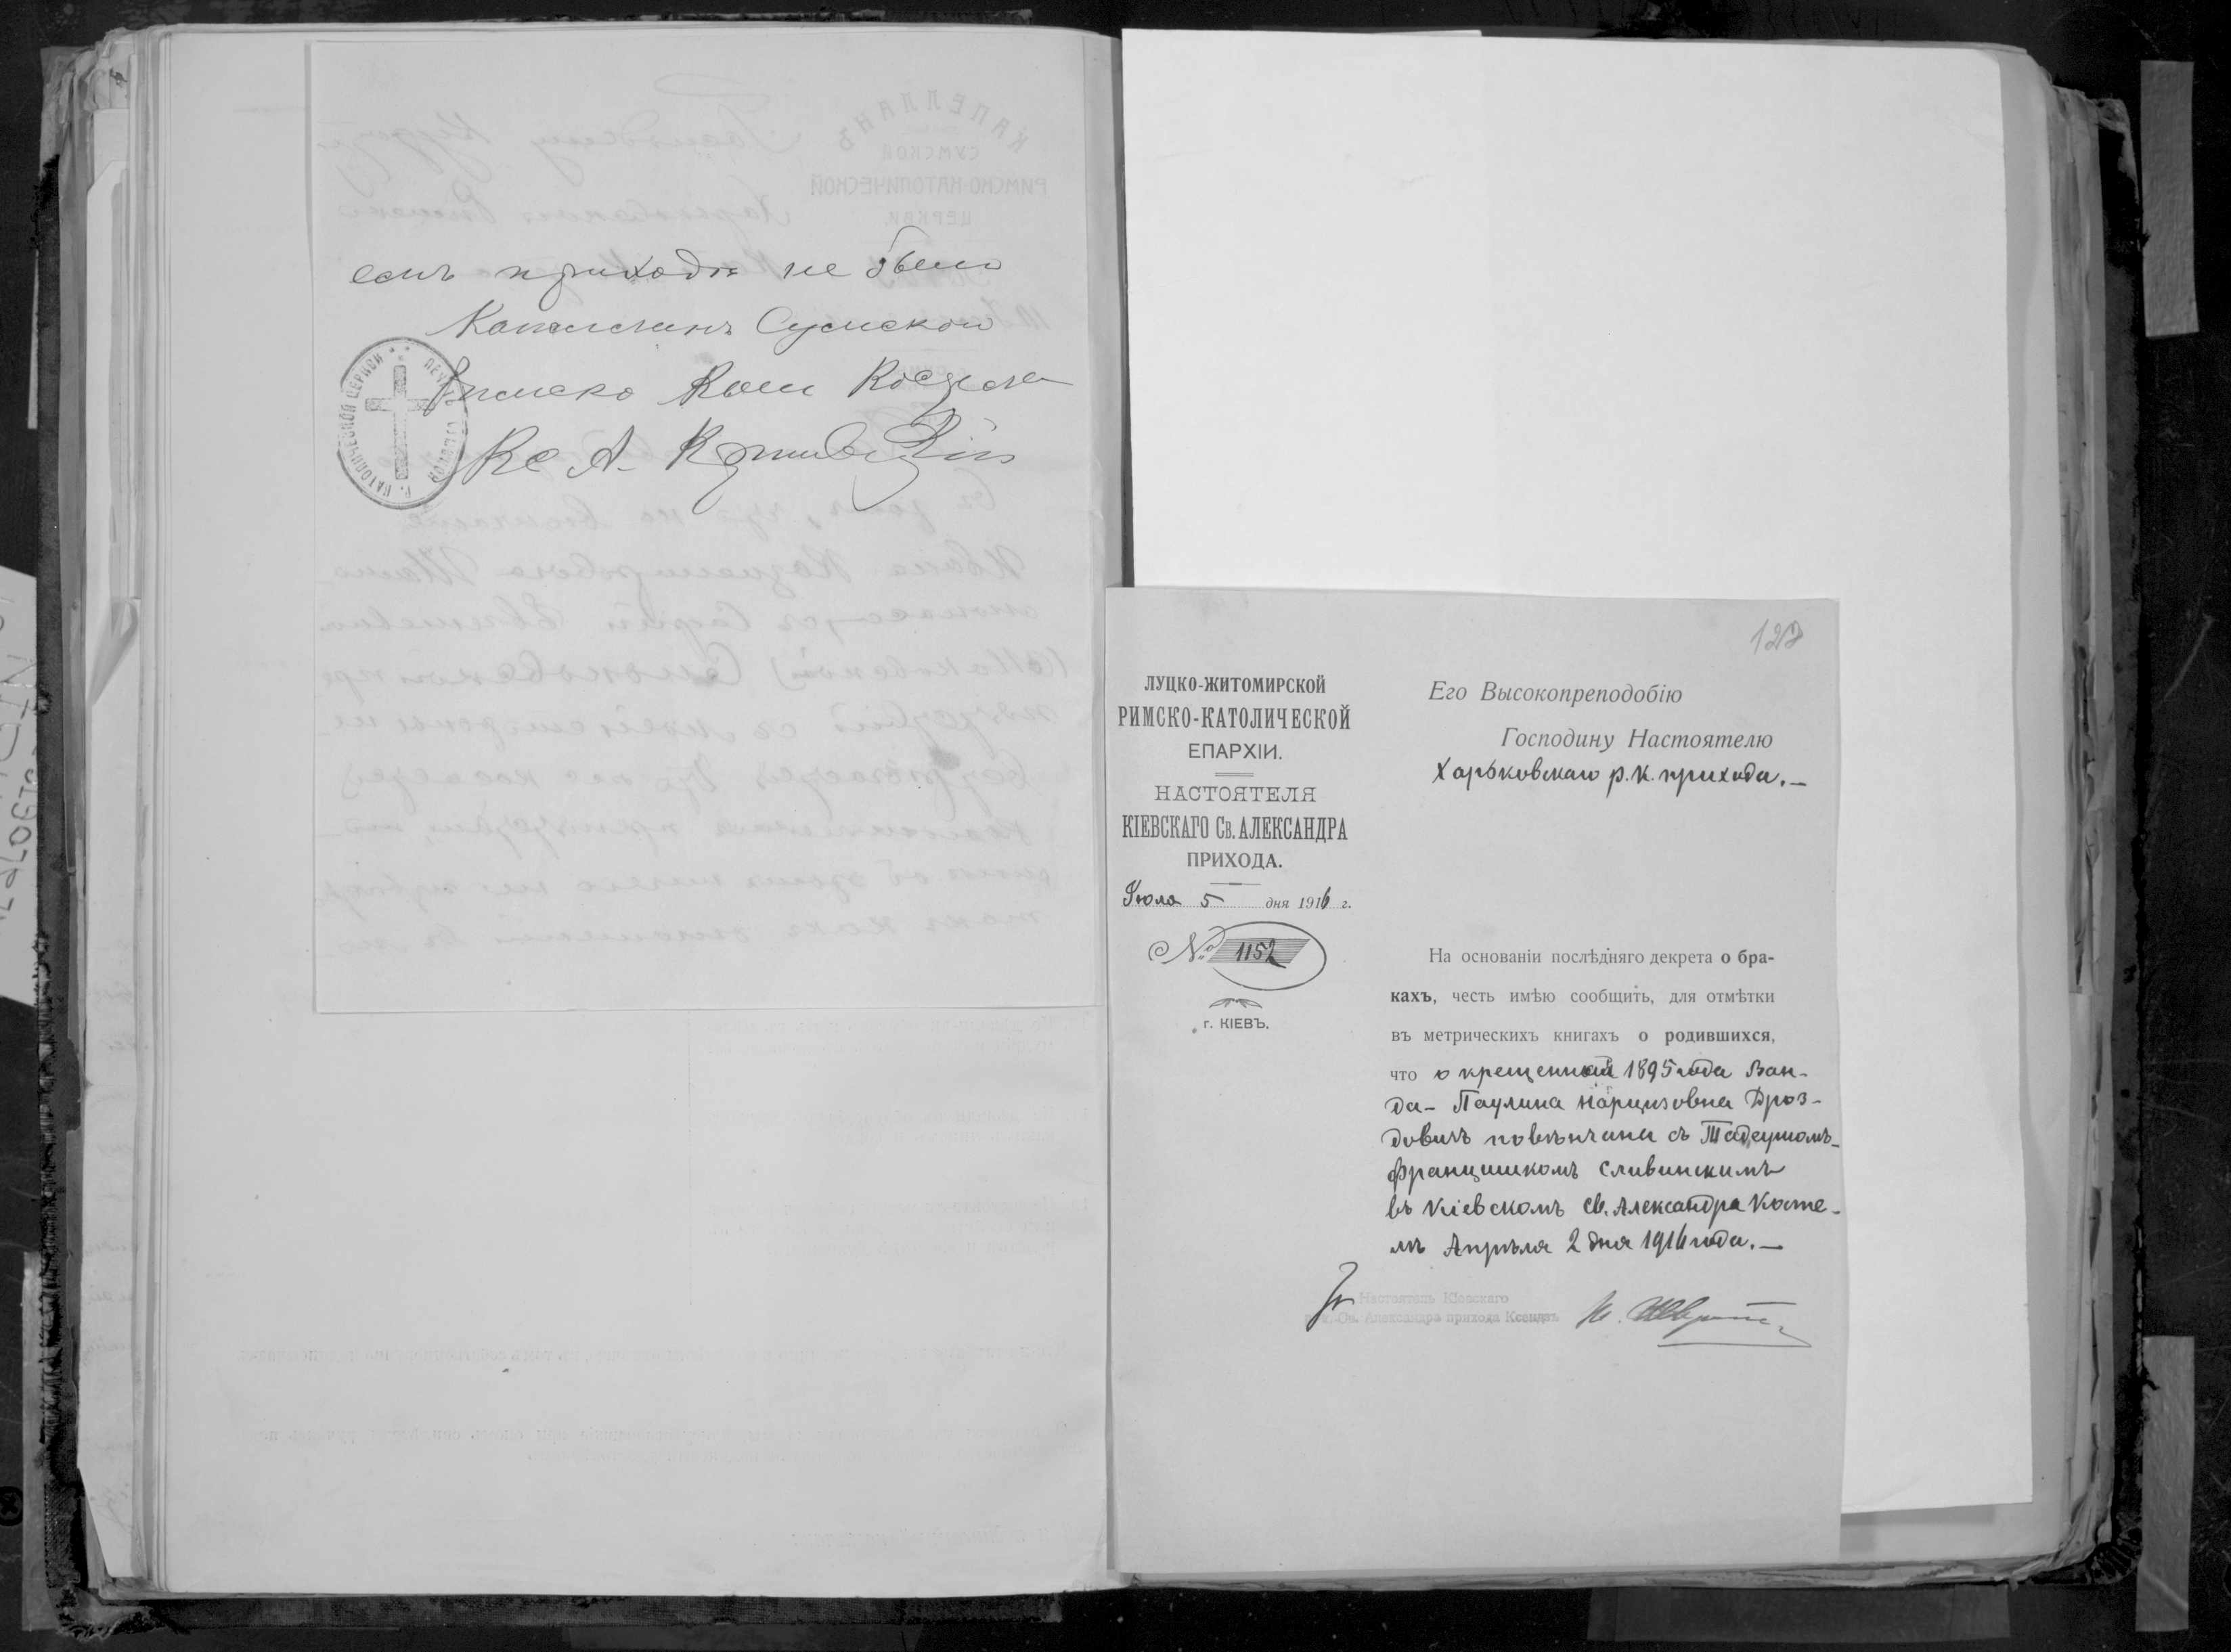 емъ приходѣ не было
Капелланъ Сумской
Римско Кат Костела
Кс А.
Р. КАТОЛИЧЕСКОЙ ЦЕРКВИ
122
ЛУЦКО-ЖИТОМИРСКОЙ
РИМСКО-КАТОЛИЧЕСКОЙ
ЕПАРХІИ.
НАСТОЯТЕЛЯ
КІЕВСКАГО СВ. АЛЕКСАНДРА
ПРИХОДА.
Іюля 5 дня 1916 г.
№ 1152
г. КІЕВЪ.
Его Высокопреподобію
Господину Настоятелю
Харьковскаго р. к. прихода.—
На основаніи послѣдняго декрета о бра-
кахъ, честь имѣю сообщить, для отмѣтки
въ метрическихъ книгахъ о родившихся,
что окрещенная 1895 года Ван-
да-Паулина Нарцизовна Дроз-
довичъ повѣнчана съ Тадеушомъ-
Францишкомъ Сливинскимъ
въ Кіевскомъ св. Александра Косте-
лѣ Апрѣля 2 дня 1916 года.—
Настоятель Кіевскаго
Св. Александра прихода Ксендзъ